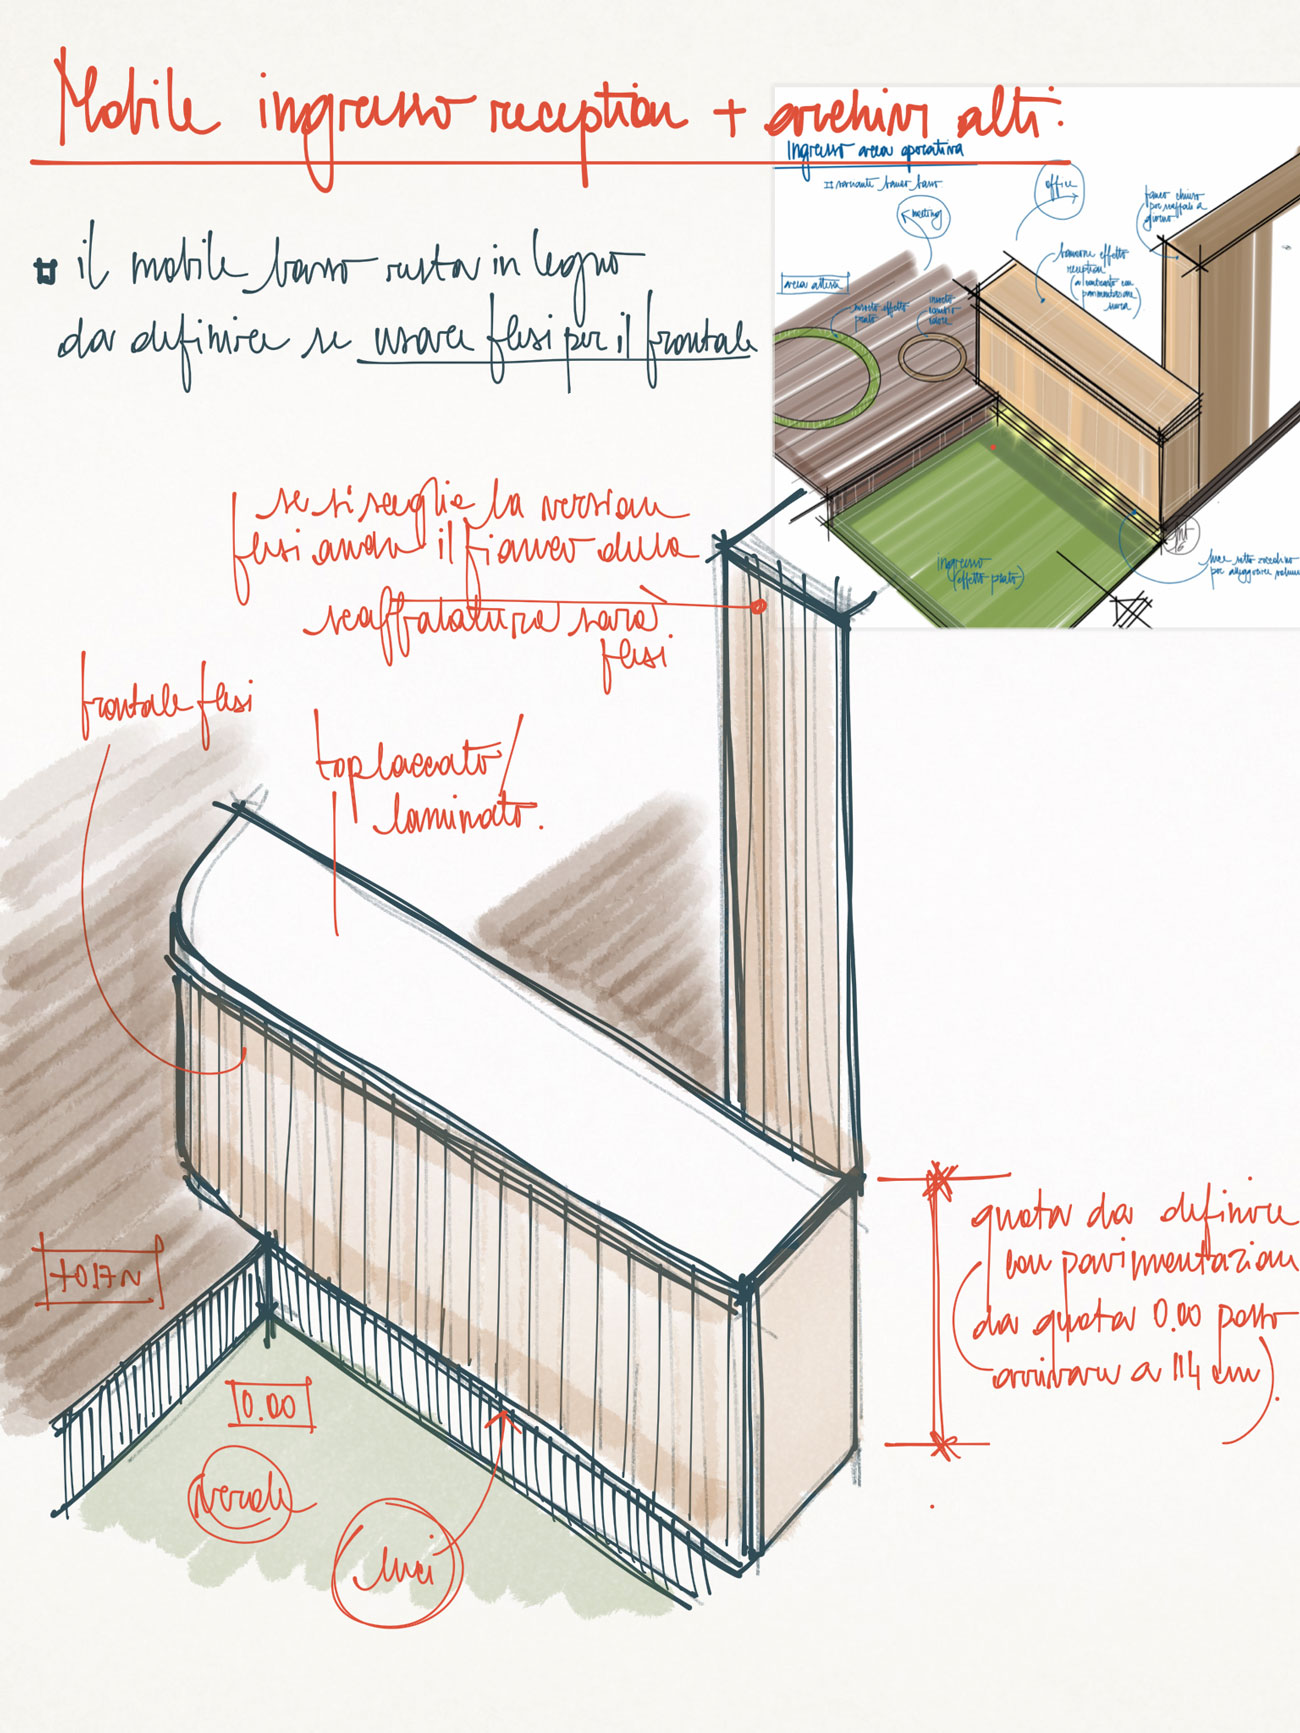 Mobile ingresso reception + archivi alti:
il mobile basso resta in legno
da definire se usare flesi per il frontale
Ingresso area operativa
variante banco basso
office
meeting
fianco chiuso
per scaffale a
giorno
area attesa
bancone effetto
reception
(a contrasto con
pavimentazione
scura)
inserto effetto
prato
inserto
cambio
colore
ingresso
(effetto prato)
luce sotto zoccolino
per alleggerire volume
se si sceglie la version
flesi anche il fianco della
scaffalatura sara
flesi
frontale flesi
top laccato/
laminato.
quota da definire
con pavimentazion
da quota 0.00 posso
arrivare a 114 cm
0.00
verde
luci